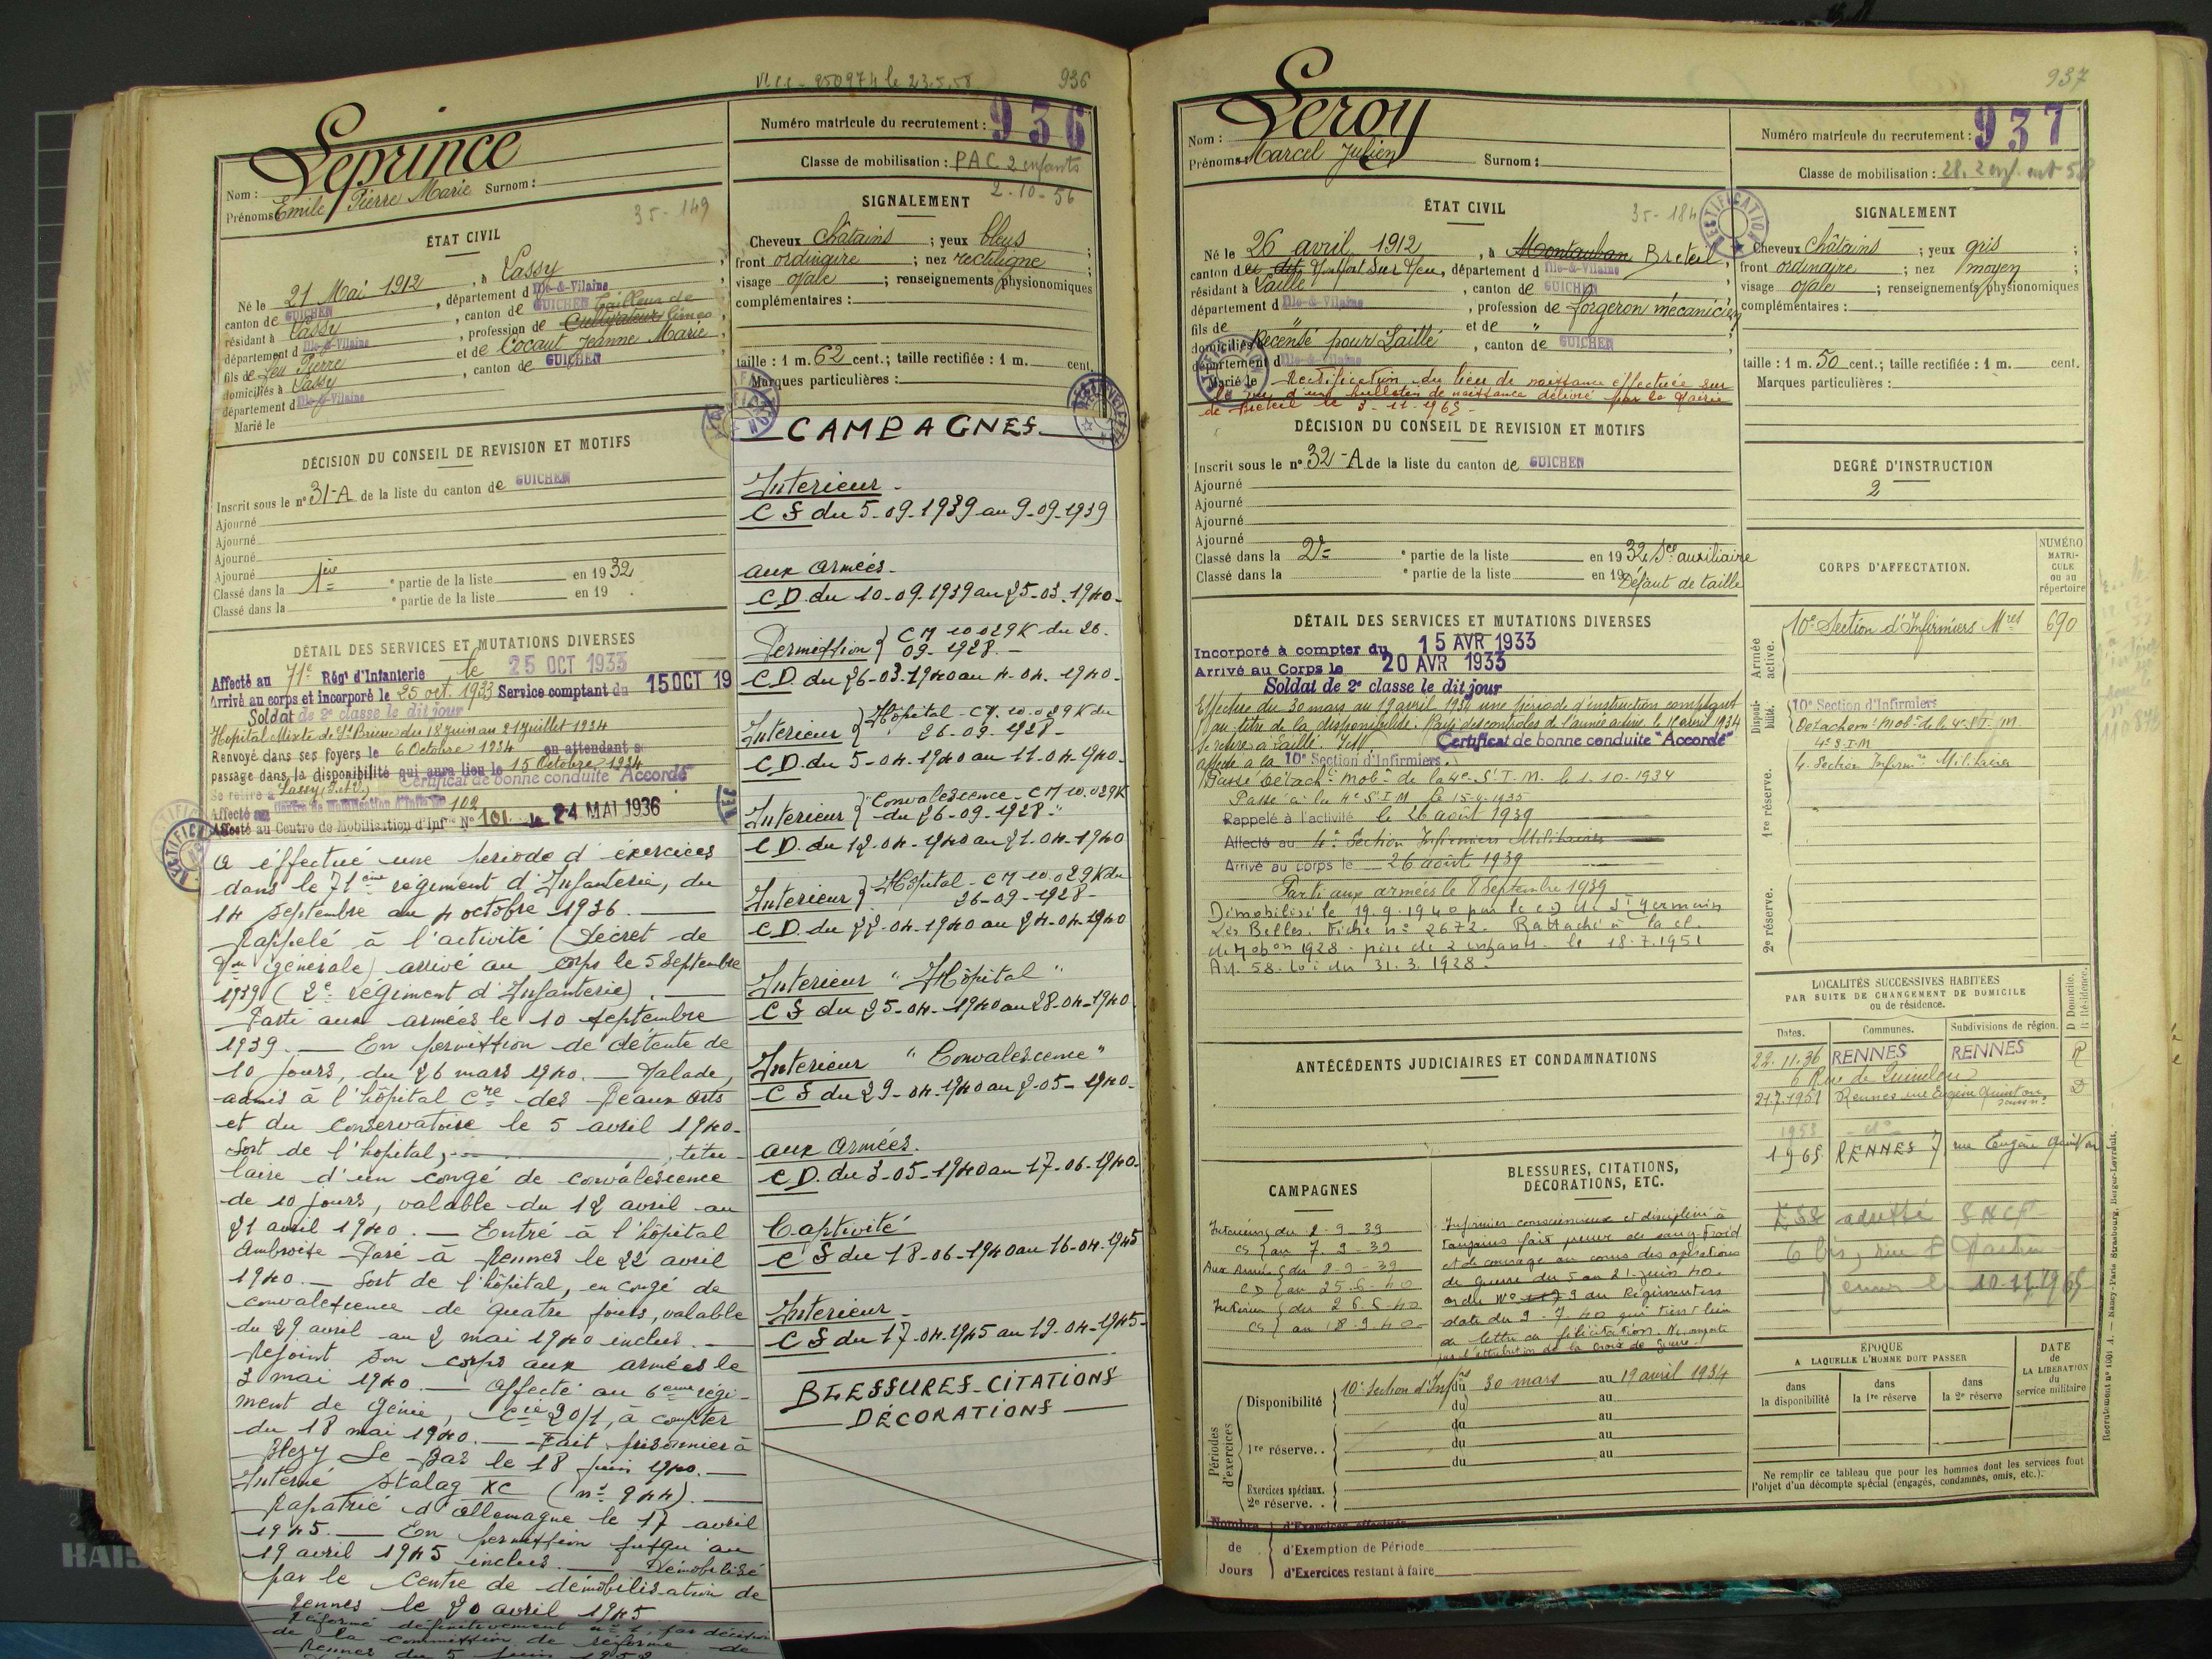 936
Leprince
Nom :
Prénoms : Emile Pierre Marie Surnom :
35-149
ÉTAT CIVIL
Né le 21 Mai 1912, à Lassy
canton de GUICHEN, département d Ille-&-Vilaine
résidant à Lassy, canton de GUICHEN
département d Ille-&-Vilaine, profession de Cultivateur
fils de feu Pierre et de Cocaut Jeanne Marie
domiciliés à Lassy, canton de GUICHEN
département d Ille-&-Vilaine
Marié le
DÉCISION DU CONSEIL DE REVISION ET MOTIFS
Inscrit sous le n° 31-A de la liste du canton de GUICHEN
Ajourné
Ajourné
Ajourné
Ajourné
Classé dans la 1ère e partie de la liste en 1932
Classé dans la e partie de la liste en 19
DÉTAIL DES SERVICES ET MUTATIONS DIVERSES
Affecté au 71e Régt d'Infanterie le 25 OCT 1933
Arrivé au corps et incorporé le 25 oct. 1933 Service comptant du 15 OCT 19
Soldat de 2e classe le dit jour
Hopital Mixte de St Brieuc du 18 juin au 21 juillet 1934
Renvoyé dans ses foyers le 6 Octobre 1934 en attendant s
passage dans la disponibilité qui aura lieu le 15 Octobre 1934
Certificat de bonne conduite "Accordé"
Se retire à Lassy (I.&V.)
Affecté au Centre de Mobilisation d'Infie 102
Affecté au Centre de Mobilisation d'Infie N° 101 le 24 MAI 1936
a éffectué une période d'éxercices
dans le 71ème régiment d'Infanterie, du
14 septembre au 4 octobre 1936.
Rappelé à l'activité (Décret de
Mon générale) arrivé au corps le 5 Septembre
1939 (2e régiment d'Infanterie).
Parti aux armées le 10 septembre
1939. — En permission de détente de
10 jours, du 26 mars 1940. — Malade,
admis à l'hôpital Cre des Beaux arts
et du Conservatoire le 5 avril 1940.
Sort de l'hôpital, titu-
laire d'un congé de convalescence
de 10 jours, valable du 12 avril au
21 avril 1940. — Entré à l'hôpital
Ambroise Paré à Rennes le 22 avril
1940. — Sort de l'hôpital, en congé de
convalescence de quatre jours, valable
du 29 avril au 2 mai 1940 inclus. —
Rejoint son corps aux armées le
3 mai 1940. — Affecté au 6ème régi-
ment de génie, Cie 20/1, à compter
du 18 mai 1940. — Fait prisonnier à
Blezy Le Bas le 18 juin 1940. —
Interné Stalag XC (n° 944). —
Rapatrié d'Allemagne le 17 avril
1945. — En permission jusqu'au
19 avril 1945 inclus. — Démobilisé
par le Centre de démobilisation de
Rennes le 20 avril 1945
Réformé définitivement n° 1, par décision
de la commission de réforme de
Rennes du 5 juin
Numéro matricule du recrutement : 936
Classe de mobilisation : PAC 2 enfants
2-10-56
SIGNALEMENT
Cheveux châtains ; yeux bleus ;
front ordinaire ; nez rectiligne ;
visage ovale ; renseignements physionomiques
complémentaires :
taille : 1 m. 62 cent.; taille rectifiée : 1 m. cent.
Marques particulières :
CAMPAGNES
Intérieur
C S du 5-09-1939 au 9-09-1939
aux armées
C.D. du 10-09-1939 au 25-03-1940-
Permission } CM 10 029K du 26-
09-1928-
C.D. du 26-03-1940 au 4-04-1940-
Intérieur } Hôpital - CM. 10.029K du
26-09-1928-
C.D. du 5-04-1940 au 11-04-1940-
Intérieur } "Convalescence - CM 10.029K
du 26-09-1928-"
C.D. du 12-04-1940 au 21-04-1940
Intérieur } Hôpital - CM 10.029K du
26-09-1928-
C.D. du 22-04-1940 au 24-04-1940
Intérieur "Hôpital"
C S du 25-04-1940 au 28-04-1940
Intérieur "Convalescence"
C S du 29-04-1940 au 2-05-1940-
aux armées
C.D. du 3-05-1940 au 17-06-1940-
Captivité
C S du 18-06-1940 au 16-04-1945
Intérieur
C S du 17-04-1945 au 19-04-1945-
BLESSURES-CITATIONS
DÉCORATIONS
937
Leroy
Nom :
Prénoms : Marcel Julien Surnom :
35-184
ÉTAT CIVIL
Né le 26 avril 1912, à Montauban Breteil,
canton de Montfort sur Meu, département d Ille-&-Vilaine
résidant à Laillé, canton de GUICHEN
département d Ille-&-Vilaine, profession de forgeron mécanicien
fils de " et de "
domiciliés Recensé pour Laillé, canton de GUICHEN
département d Ille-&-Vilaine
Marié le Rectification du lieu de naissance effectuée sur
le vu d'un bulletin de naissance délivré par la Mairie
de Breteil le 3-11-1965-
DÉCISION DU CONSEIL DE REVISION ET MOTIFS
Inscrit sous le n° 32-A de la liste du canton de GUICHEN
Ajourné
Ajourné
Ajourné
Ajourné
Classé dans la 2e e partie de la liste en 1932 Sce auxiliaire
Classé dans la e partie de la liste en 19 Défaut de taille
DÉTAIL DES SERVICES ET MUTATIONS DIVERSES
Incorporé à compter du 15 AVR 1933
Arrivé au Corps le 20 AVR 1933
Soldat de 2e classe le dit jour
Effectue du 30 mars au 19 avril 1934 une période d'instruction comptant
au titre de la disponibilité. Rayé des contrôles de l'armée active le 15 avril 1934
Se retire à Laillé. I&V. Certificat de bonne conduite "Accordé"
affecté à la 10e Section d'Infirmiers.
Passé Détacht mobr de la 4e S.I.M. le 1.10-1934
Passé à la 4e S.I.M le 15-4-1935
Rappelé à l'activité le 26 août 1939
Affecté au 4e Section Infirmiers Militaires
Arrivé au corps le 26 août 1939
Parti aux armées le 8 Septembre 1939
Démobilisé le 19.9.1940 par le CD de St Germain
Les Belles. Fiche n° 2672. Rattaché à la cl.
de Mobon 1928 - père de 2 enfants - le 18.7.1951
Art. 58. Loi du 31.3.1928.
ANTÉCÉDENTS JUDICIAIRES ET CONDAMNATIONS
CAMPAGNES
Intérieur } du 2-9-39
CS } au 7-9-39
Aux Armées } du 8-9-39
C.D } au 25-6-40
Intérieur } du 26-6-40
CS } au 18-9-40
BLESSURES, CITATIONS,
DÉCORATIONS, ETC.
Infirmier consciencieux et discipliné à
toujours fait preuve de sang-froid
et de courage au cours des opérations
de guerre du 5 au 21 juin 40.
ordre N° 9 du Régiment en
date du 9-7-40 qui tient lieu
de lettre de félicitation. Ne comporte
pas l'attribution de la Croix de Guerre.
Périodes d'exercices
Disponibilité 10e Section d'Infres du 30 mars au 19 avril 1934
du au
du au
1re réserve.. du au
du au
Exercices spéciaux.
2e réserve. .
Nombre d'Exercices effectués
de d'Exemption de Période
Jours d'Exercices restant à faire
Numéro matricule du recrutement : 937
Classe de mobilisation : 28. 2 enf.
SIGNALEMENT
Cheveux châtains ; yeux gris ;
front ordinaire ; nez moyen ;
visage ovale ; renseignements physionomiques
complémentaires :
taille : 1 m. 50 cent.; taille rectifiée : 1 m. cent.
Marques particulières :
DEGRÉ D'INSTRUCTION
2
CORPS D'AFFECTATION.
NUMÉRO MATRICULE ou au répertoire
Armée active.
10e Section d'Infirmiers Mres 690
Disponibilité.
10e Section d'Infirmiers
Détachemt Mobr de la 4e S.I.M.
1re réserve.
4e S.I.M
4. Section Infirmrs Militaires
2e réserve.
LOCALITÉS SUCCESSIVES HABITÉES
PAR SUITE DE CHANGEMENT DE DOMICILE
ou de résidence.
Dates. Communes. Subdivisions de région. D Domicile. R Résidence.
22.11.36 RENNES RENNES R
21.7.1951 Rennes rue Eugène Quinton D
1953 do
1965 RENNES 7 rue Eugène Quinton
ESS adressé SNCF
10-11-1965
ÉPOQUE
A LAQUELLE L'HOMME DOIT PASSER
dans la disponibilité
dans la 1re réserve
dans la 2e réserve
DATE de LA LIBÉRATION du service militaire
Ne remplir ce tableau que pour les hommes dont les services font
l'objet d'un décompte spécial (engagés, condamnés, omis, etc.).
Recrutement n° 1001 A. — Nancy-Paris-Strasbourg, Berger-Levrault.